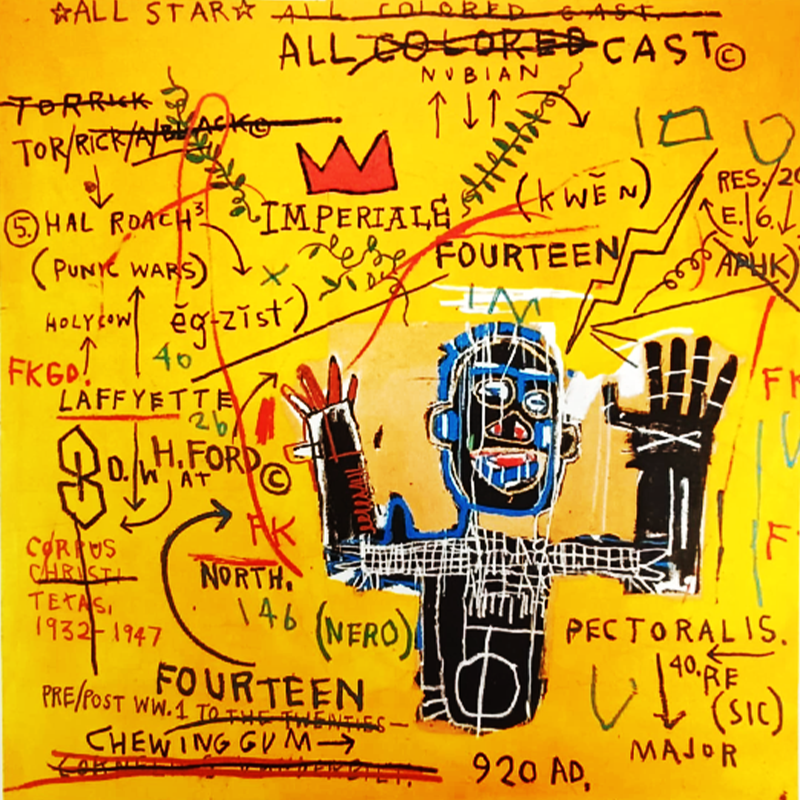 ☆ALL STAR☆ ALL COLORED CAST.
ALL COLORED CAST©
NUBIAN
TORRICK
TOR/RICK/A/BLACK©
(KWĒN)
RES./20
⑤. HAL ROACH³
IMPERIALE
E./6.
FOURTEEN
APHK)
(PUNIC WARS)
HOLYCOW
ĕg-zĭst´)
46
FKGD.
FK
LAFFYETTE
26
D./W H. FORD©
AT
FK
F
CORPUS
CHRISTI
NORTH.
TEXAS,
1932-1947
146 (NERO)
PECTORALIS.
FOURTEEN
40.RE
PRE/POST WW.1 TO THE TWENTIES-
(SIC)
CHEWING GUM→
MAJOR
920 AD.